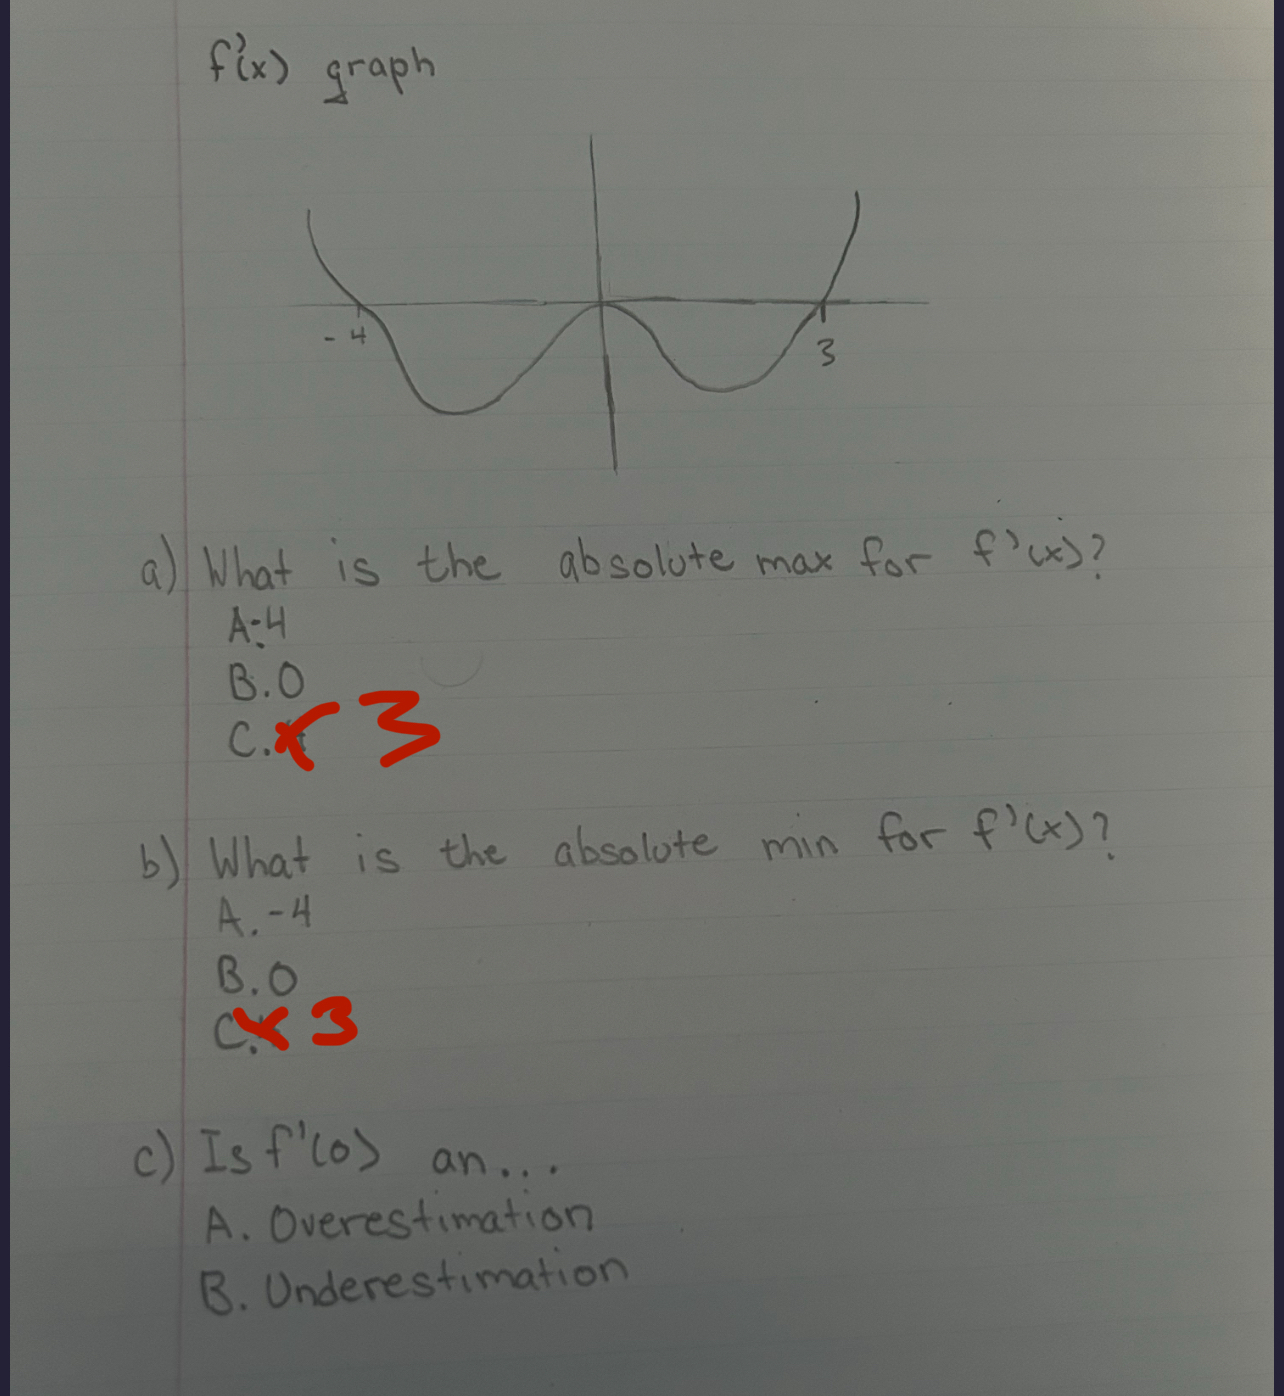 f'(x) graph
-4
3
a) What is the absolute max for f'(x)?
A.-4
B.0
C. 3
b) What is the absolute min for f'(x)?
A.-4
B.0
C. 3
c) Is f'(0) an...
A. Overestimation
B. Underestimation